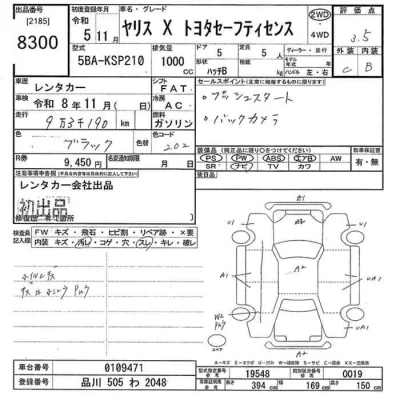 出品番号 [2185] 8300
初度登録年月 令和 5年 11月
車名・グレード ヤリス X トヨタセーフティセンス
2WD 4WD
評価点 3.5
型式 5BA-KSP210
排気量 1000 CC
ドア 5 定員 5 人
形状 ハッチB
ディーラー・並行
モデル年式 年
ハンドル 左・右
外装 内装 C B
車歴 レンタカー
シフト FAT
セールスポイント
車検 令和 8年 11月( 日)
冷房 AC
・プッシュスタート
走行 9万3千190 km
燃料 ガソリン
・バックカメラ
色 ブラック
色コード 202
R 9,450 円
名義変更期限 月 日
装備品
PS PW ABS エアB AW
SR ナビ TV カワ
新車保証書 有・無
注意事項申告欄
レンタカー会社出品
初出品
修復歴
後日品
検査員記入欄
FW キズ・飛石・ヒビ割・リペア跡・×要
内装 キズ・汚レ・コゲ・穴・スレ・キレ・破レ
A1
U1 A2 U1
A2 UA1
UA1 A1
A2
A1
車台番号 0109471
登録番号 品川 505 わ 2048
型式指定番号 19548 類別区分番号 0019
参考 長さ 394 cm 幅 169 cm 高さ 150 cm